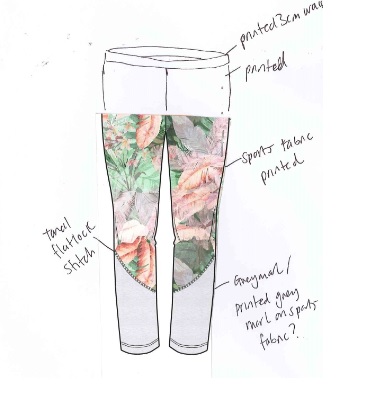 printed 3cm wa
printed
sports fabric
printed
tonal
flatlock
stitch
Greymarl /
printed grey
marl on sports
fabric?